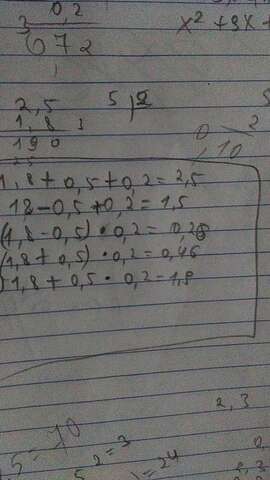 0,2
3
672
x² + 9x +
2,5
5 2
1,8 3
190
25
0 2
, 10
1,8 + 0,5 + 0,2 = 2,5
18 - 0,5 + 0,2 = 1,5
(1,8 - 0,5) · 0,2 = 0,26
(1,8 + 0,5) · 0,2 = 0,46
) 1,8 + 0,5 · 0,2 = 1,9
2,3
5 = 10
5 2 = 3
= 24